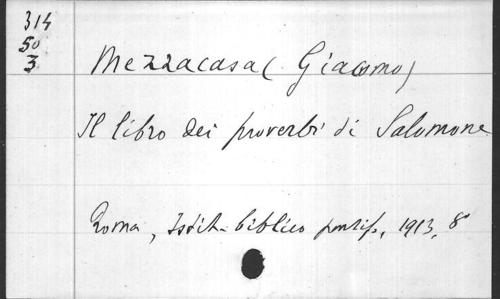 314
50
3
Mezzacasa (Giacomo)
Il libro dei proverbi di Salomone
Roma, Istit. biblico pontif., 1913, 8°